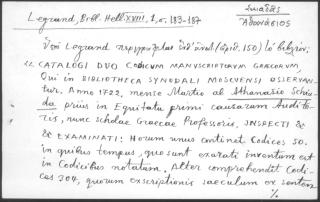 Legrand, Bibl. Hell. XVIII, 1, σ. 183-187
Σκιαδᾶς
Ἀθανάσιος
Ὑπὸ Legrand περιγράφεται ὑπ' ἀριθ. 150) τὸ βιβλίον:
CATALOGI DUO CODICUM MANUSCRIPTORUM GRAECORUM,
Qui in BIBLIOTHECA SYNODALI MOSCUENSI OBSERVAN-
tur. Anno 1722, mense Martio al Athanasio Schia-
da prius in Equitatu primi causarum Audito-
ris, nunc scholae Graecae Professoris, INSPECTI &
EXAMINATI: Horum unus continet Codices 50.
in quibus tempus, quo sunt exarati inventum est
in Codicibus notatum. Alter comprehendit Codi-
ces 304, quorum exscriptionis saeculum ex senten
./.